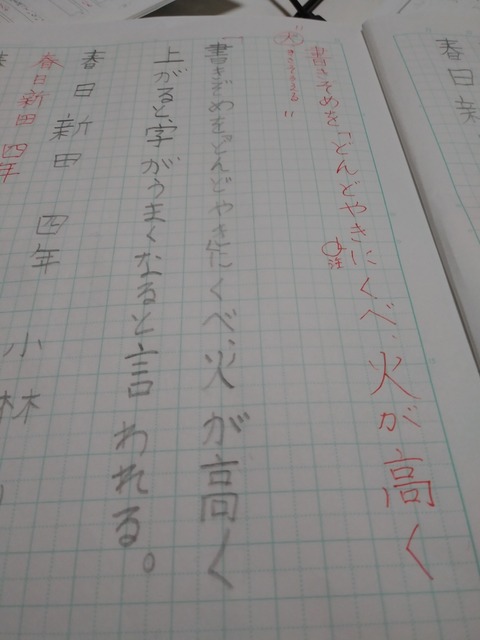 春日
書きぞめを「どんどやきにくべ、火が高く
注
火
「書きぞめを『どんどやきにくべ、火が高く
上がると、字がうまくなると言われる。
春日新田 四年 小林
春日新田 四年